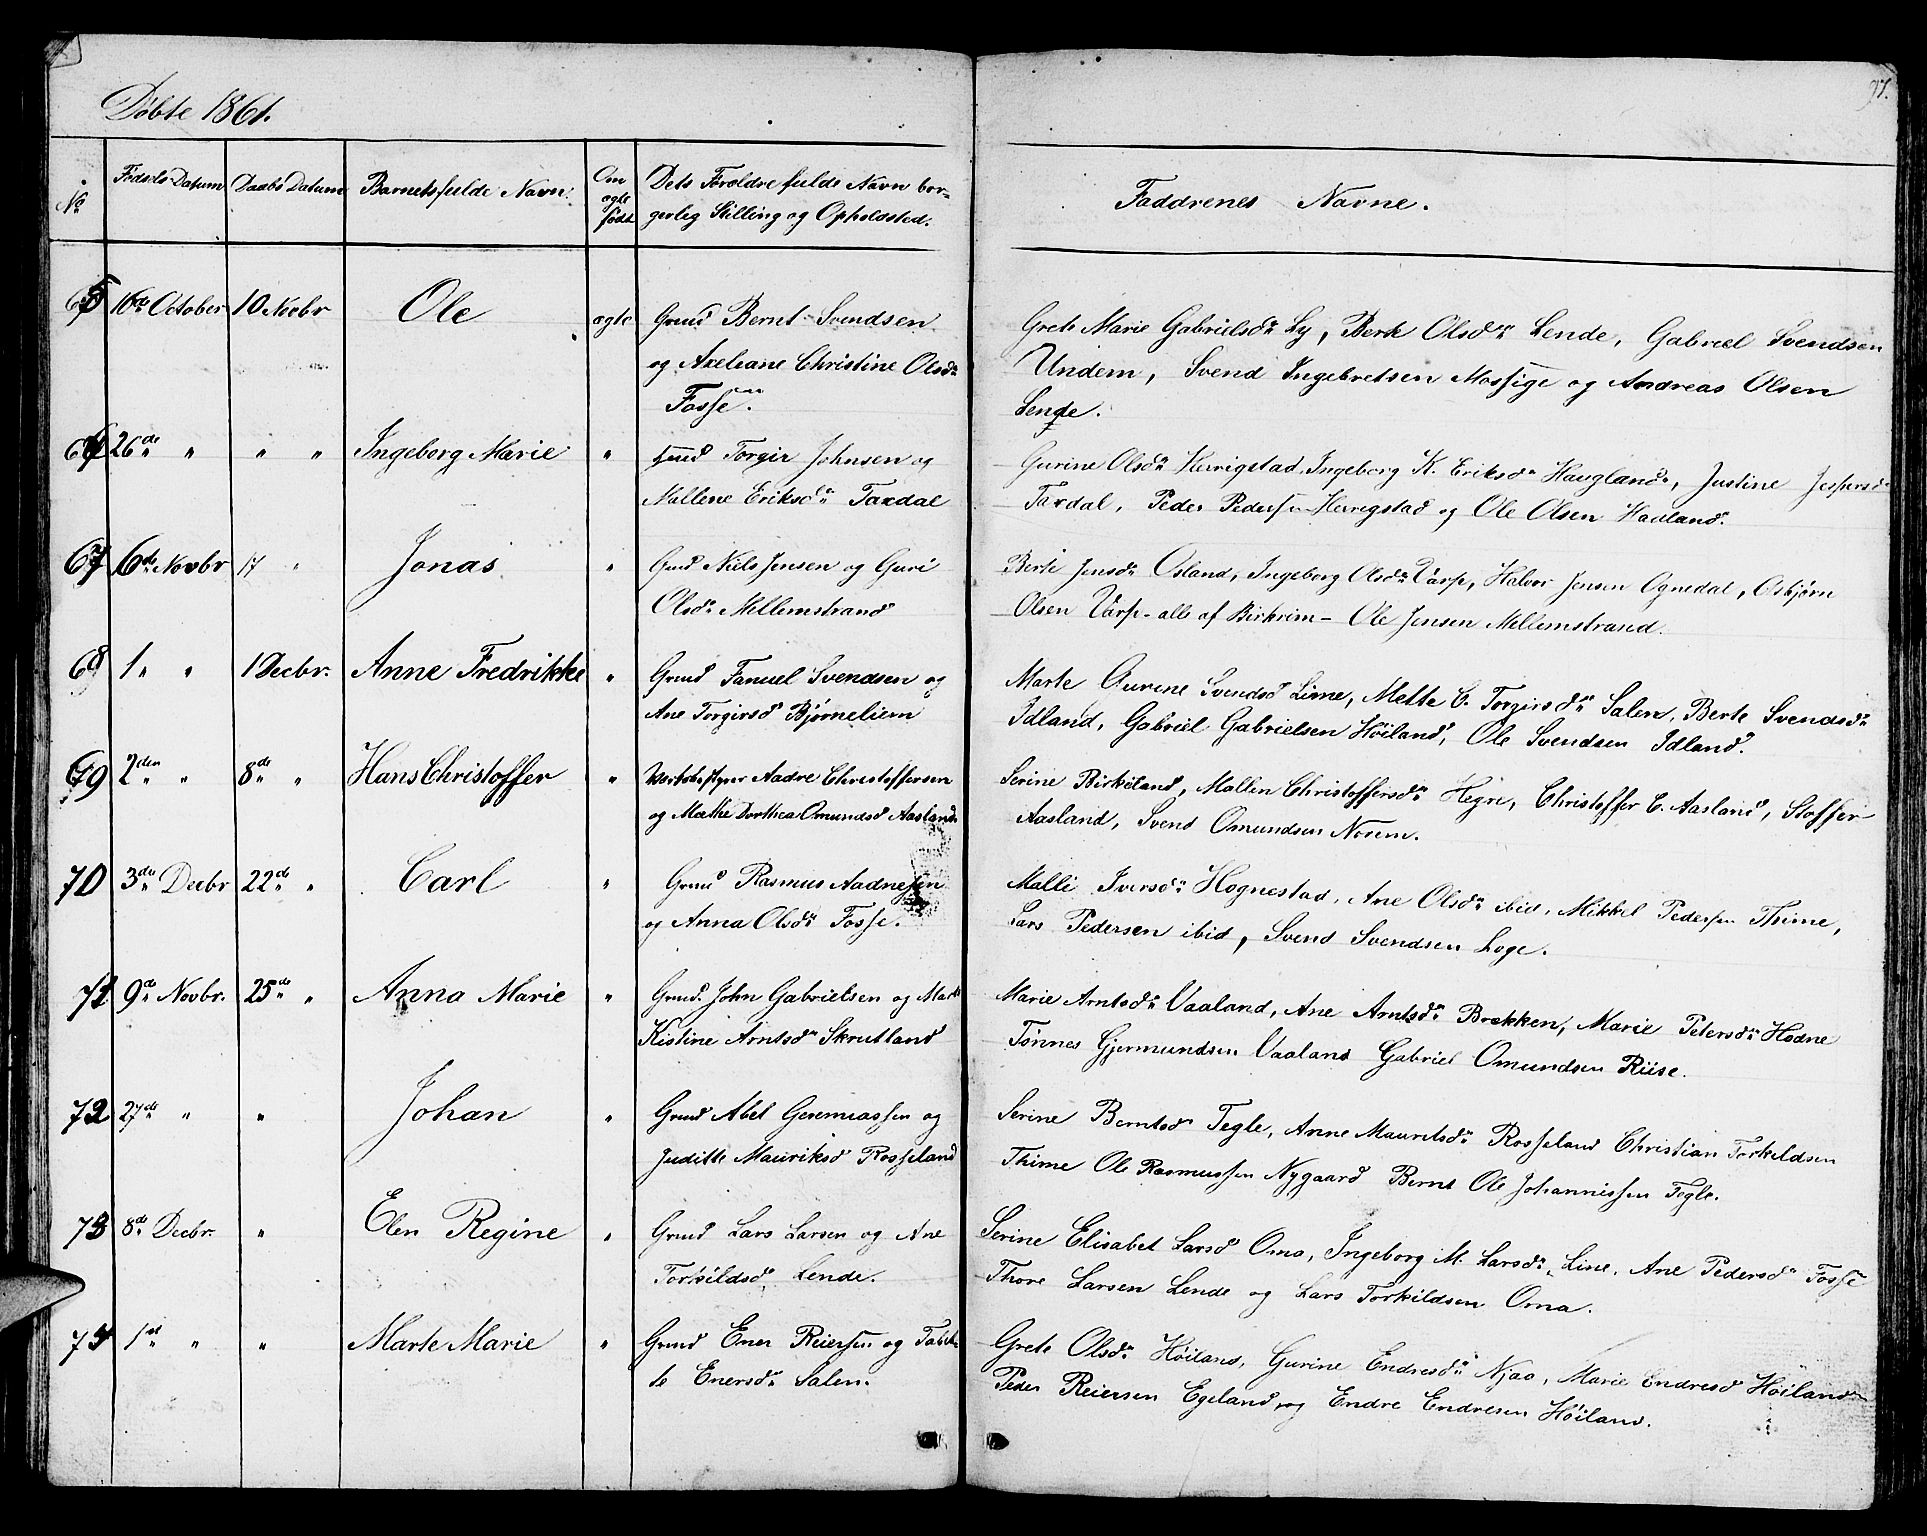 97.
Döbte 1861.
No Födsels-Datum Daabs Datum Barnets fulde Navn. Om ægte födt Dets Foroldre fulde Navn bor-
gerlig Stilling og Opholdsted.
Faddrenes Navne.
65 16de October 10 Novbr Ole ægte Grmd Bernt Svendsen
og Axeliane Christine Olsdn
Fosse.
Grete Marie Gabrielsdn Ly, Berte Olsdn Lende, Gabriel Svendsen
Undem, Svend Ingebretsen Mossige og Andreas Olsen
Lende.
66 26de " " " " Ingeborg Marie " Grmd Torgir Johnsen og
Mallene Eriksdn Taxdal
Gurine Olsdn Herrigstad, Ingeborg K. Eriksdn Haugland, Justine Jespersdn
Taxdal, Peder Pedersen Herrigstad og Ole Olsen Haaland.
67 6de Novbr 17 " Jonas " Gmd Niels Jensen og Guri
Olsdn Mellemstrand
Berte Jensdn Osland, Ingeborg Olsdn Varp, Halvor Jensen Ognedal, Osbjörn
Olsen Varp - alle af Birkrim - Ole Jensen Mellemstrand.
68 1 " " 1 Decbr. Anne Fredrikke " Grmd Fanuel Svendsen og
Ane Torgirsd Bjørneliem
Marte Gurine Svendsd Lime, Mette C. Torgirsdn Salen, Berte Svendsdn
Idland, Gabriel Gabrielsen Höiland, Ole Svendsen Idland.
69 2den " 8de " Hans Christoffer " Værksbestyrer Aadne Christoffersen
og Mæthe Dorthea Omundsd Aasland
Serine Birkeland, Mallen Christoffersdn Hegre, Christoffer C. Aasland, Stoffer
Aasland, Svend Omundsen Norem.
70 3die Decbr 22de " Carl " Grmd Rasmus Aadnesen
og Anna Olsdn Fosse.
Malli Iversdn Hognestad, Ane Olsdn ibid, Mikkel Pedersen Thime,
Lars Pedersen ibid, Svend Svendsen Loge.
71 9de Novbr. 25de " Anna Marie " Grmd. John Gabrielsen og Marte
Kistine Arntsdn Skrutland
Marie Arntsdn Vaaland, Ane Arntsdn Brekken, Marie Petersdn Hodne
Tønnes Gjermundsen Vaaland Gabriel Omundsen Riise.
72 27de " " Johan " Grmd Abel Geremiassen og
Juditte Mauriksd Rosseland
Serine Berntsd Tegle, Anne Mauritsdn Rosseland Christian Torkeldsen
Thime Ole Rasmussen Nygaard Bernt Ole Johannissen Tegle.
73 8de Decbr. " Elen Regine " Grmd Lars Larsen og Ane
Torkildsd. Lende.
Serine Elisabet Larsd Oma, Ingeborg M. Larsdn Line, Ane Pedersdn Fosse
Thore Larsen Lende og Lars Torkildsen Oma.
74 1st " " Marte Marie " Grmd Ener Reiersen og Tabit-
te Enersdn Salen.
Grete Olsdn Höiland, Gurine Endresdn Njaa, Marie Endresd Höiland
Peder Reiersen Egeland, og Endre Endresen Höiland.